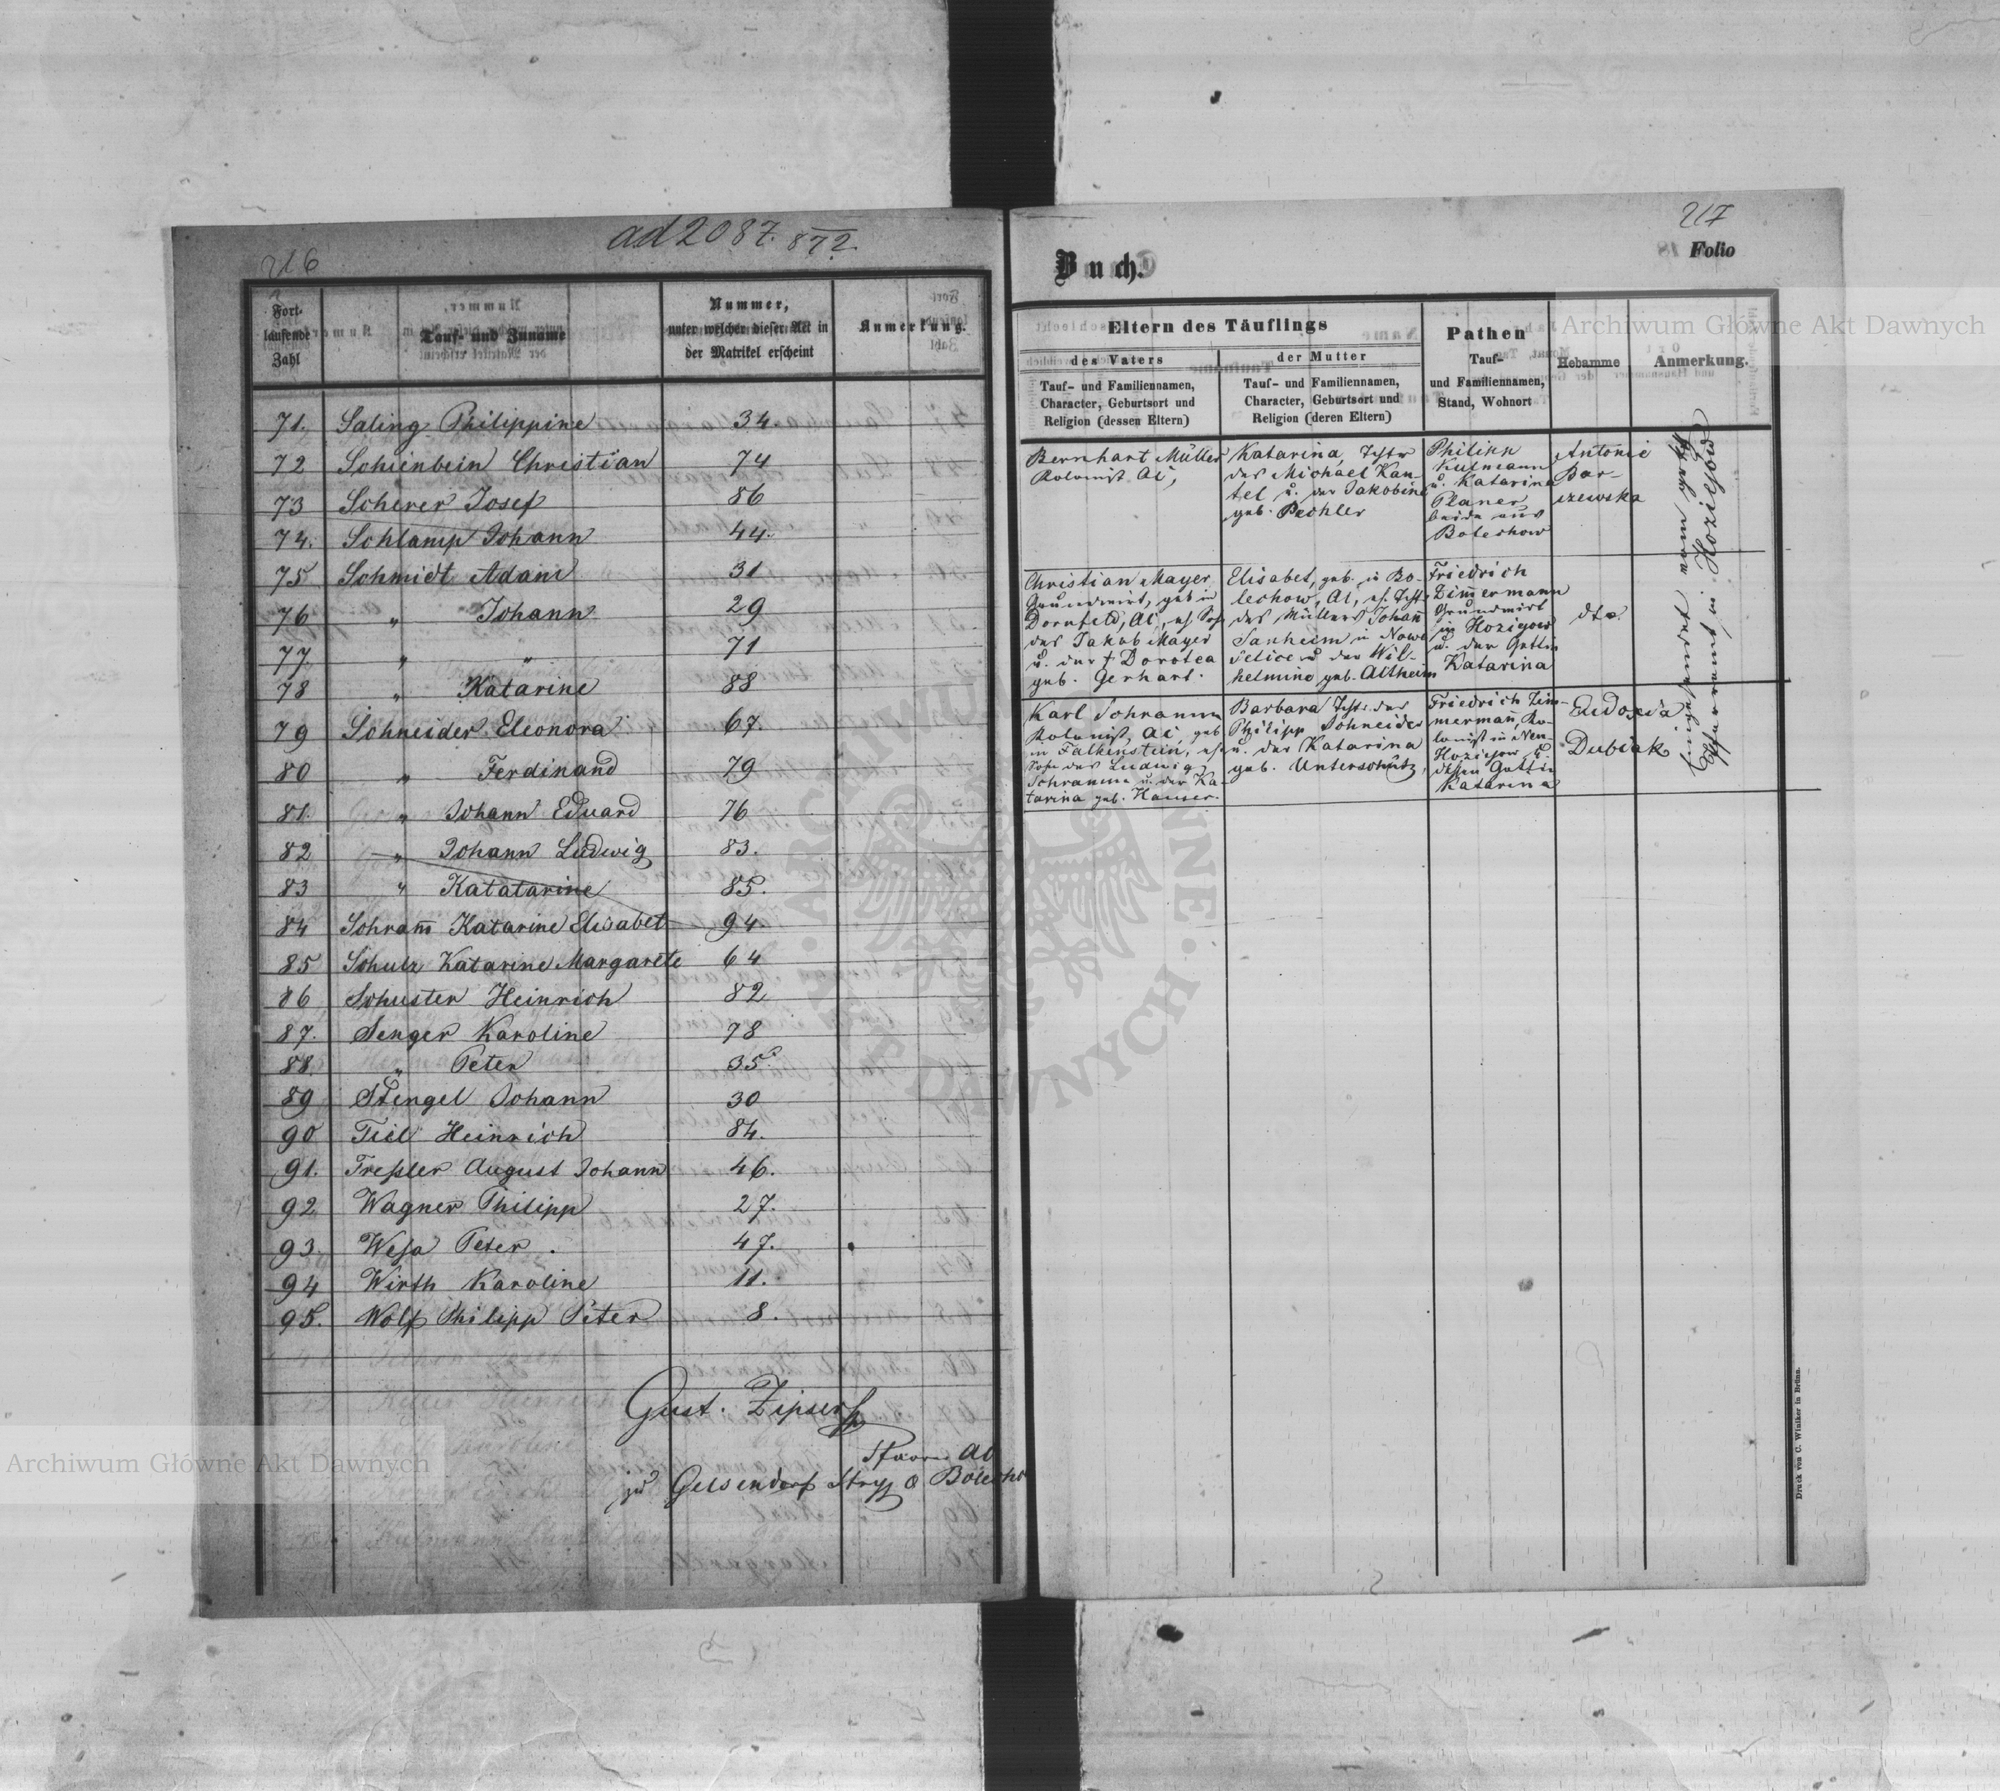 ad 2087. 872.
216
Fort-
laufende
Zahl
Tauf- und Zuname
Nummer,
unter welcher dieser Akt in
der Matrikel erscheint
Anmerkung.
71. Saling Philippine 34.
72 Schienbein Christian 74
73 Scherer Josef 86
74. Schlamp Johann 44.
75 Schmidt Adam 31
76 " Johann 29
77. " " 71
78 " Katarine 88
79 Schneider Eleonora 67.
80 " Ferdinand 79
81. " Johann Eduard 76
82 " Johann Ludwig 83.
83 " Katatarine 85.
84 Schram̄ Katarine Elisabet 94.
85 Schulz Katarine Margarete 64
86 Schuster Heinrich 82
87. Senger Karoline 78
88. " Peter 35.
89 Stengel Johann 30
90 Tiel Heinrich 84.
91. Treßler August Johann 46.
92 Wagner Philipp 27.
93. Wesa Peter. 47.
94 Wirth Karoline 11.
95. Wolf Philipp Peter 8.
Gust. Zipser
Pfarrer AC
zu Gelsendorf Stryj & Bolecho
217
Buch.
Folio
Eltern des Täuflings
des Vaters
Tauf- und Familiennamen,
Character, Geburtsort und
Religion (dessen Eltern)
der Mutter
Tauf- und Familiennamen,
Character, Geburtsort und
Religion (deren Eltern)
Pathen
Tauf-
und Familiennamen,
Stand, Wohnort
Hebamme
Anmerkung.
Bernhart Müller
Kolonist AC,
Katarina, Tochter
des Michael Kan-
tel u. der Jakobine
geb. Pechler
Philipp
Kulmann
u. Katarina
Planer
beide aus
Bolechow
Antonie
Bar-
szewska
Christian Mayer
Grundwirt, geb in
Dornfeld, AC, eh. Sohn
des Jakob Mayer
u. der † Dorotea
geb. Gerhart.
Elisabet, geb. in Bo-
lechow, AC, eh. Tochter
des Müllers Johañ
Sanheim in Nowe
Selice u der Wil-
helmine geb. Altheim
Friedrich
Zimmermann
Grundwirt
in Hoziejow
u. der Gattin
Katarina
dto.
Karl Schramm
Kolonist, AC, geb
in Falkenstein, eh.
Sohn des Ludwig
Schramm u. der Ka-
tarina geb. Hauser.
Barbara Tochter des
Philipp Schneider
u. der Katarina
geb. Unterschütz,
Friedrich Zim-
mermañ, Ko-
lonist in Neu-
Hoziejow u.
dessen Gattin
Katarina
Eudoxia
Dubiak
Eingesendet vom
Pfarramt in Hoziejów
Druck von C. Winiker in Brünn.
Archiwum Główne Akt Dawnych
Archiwum Główne Akt Dawnych